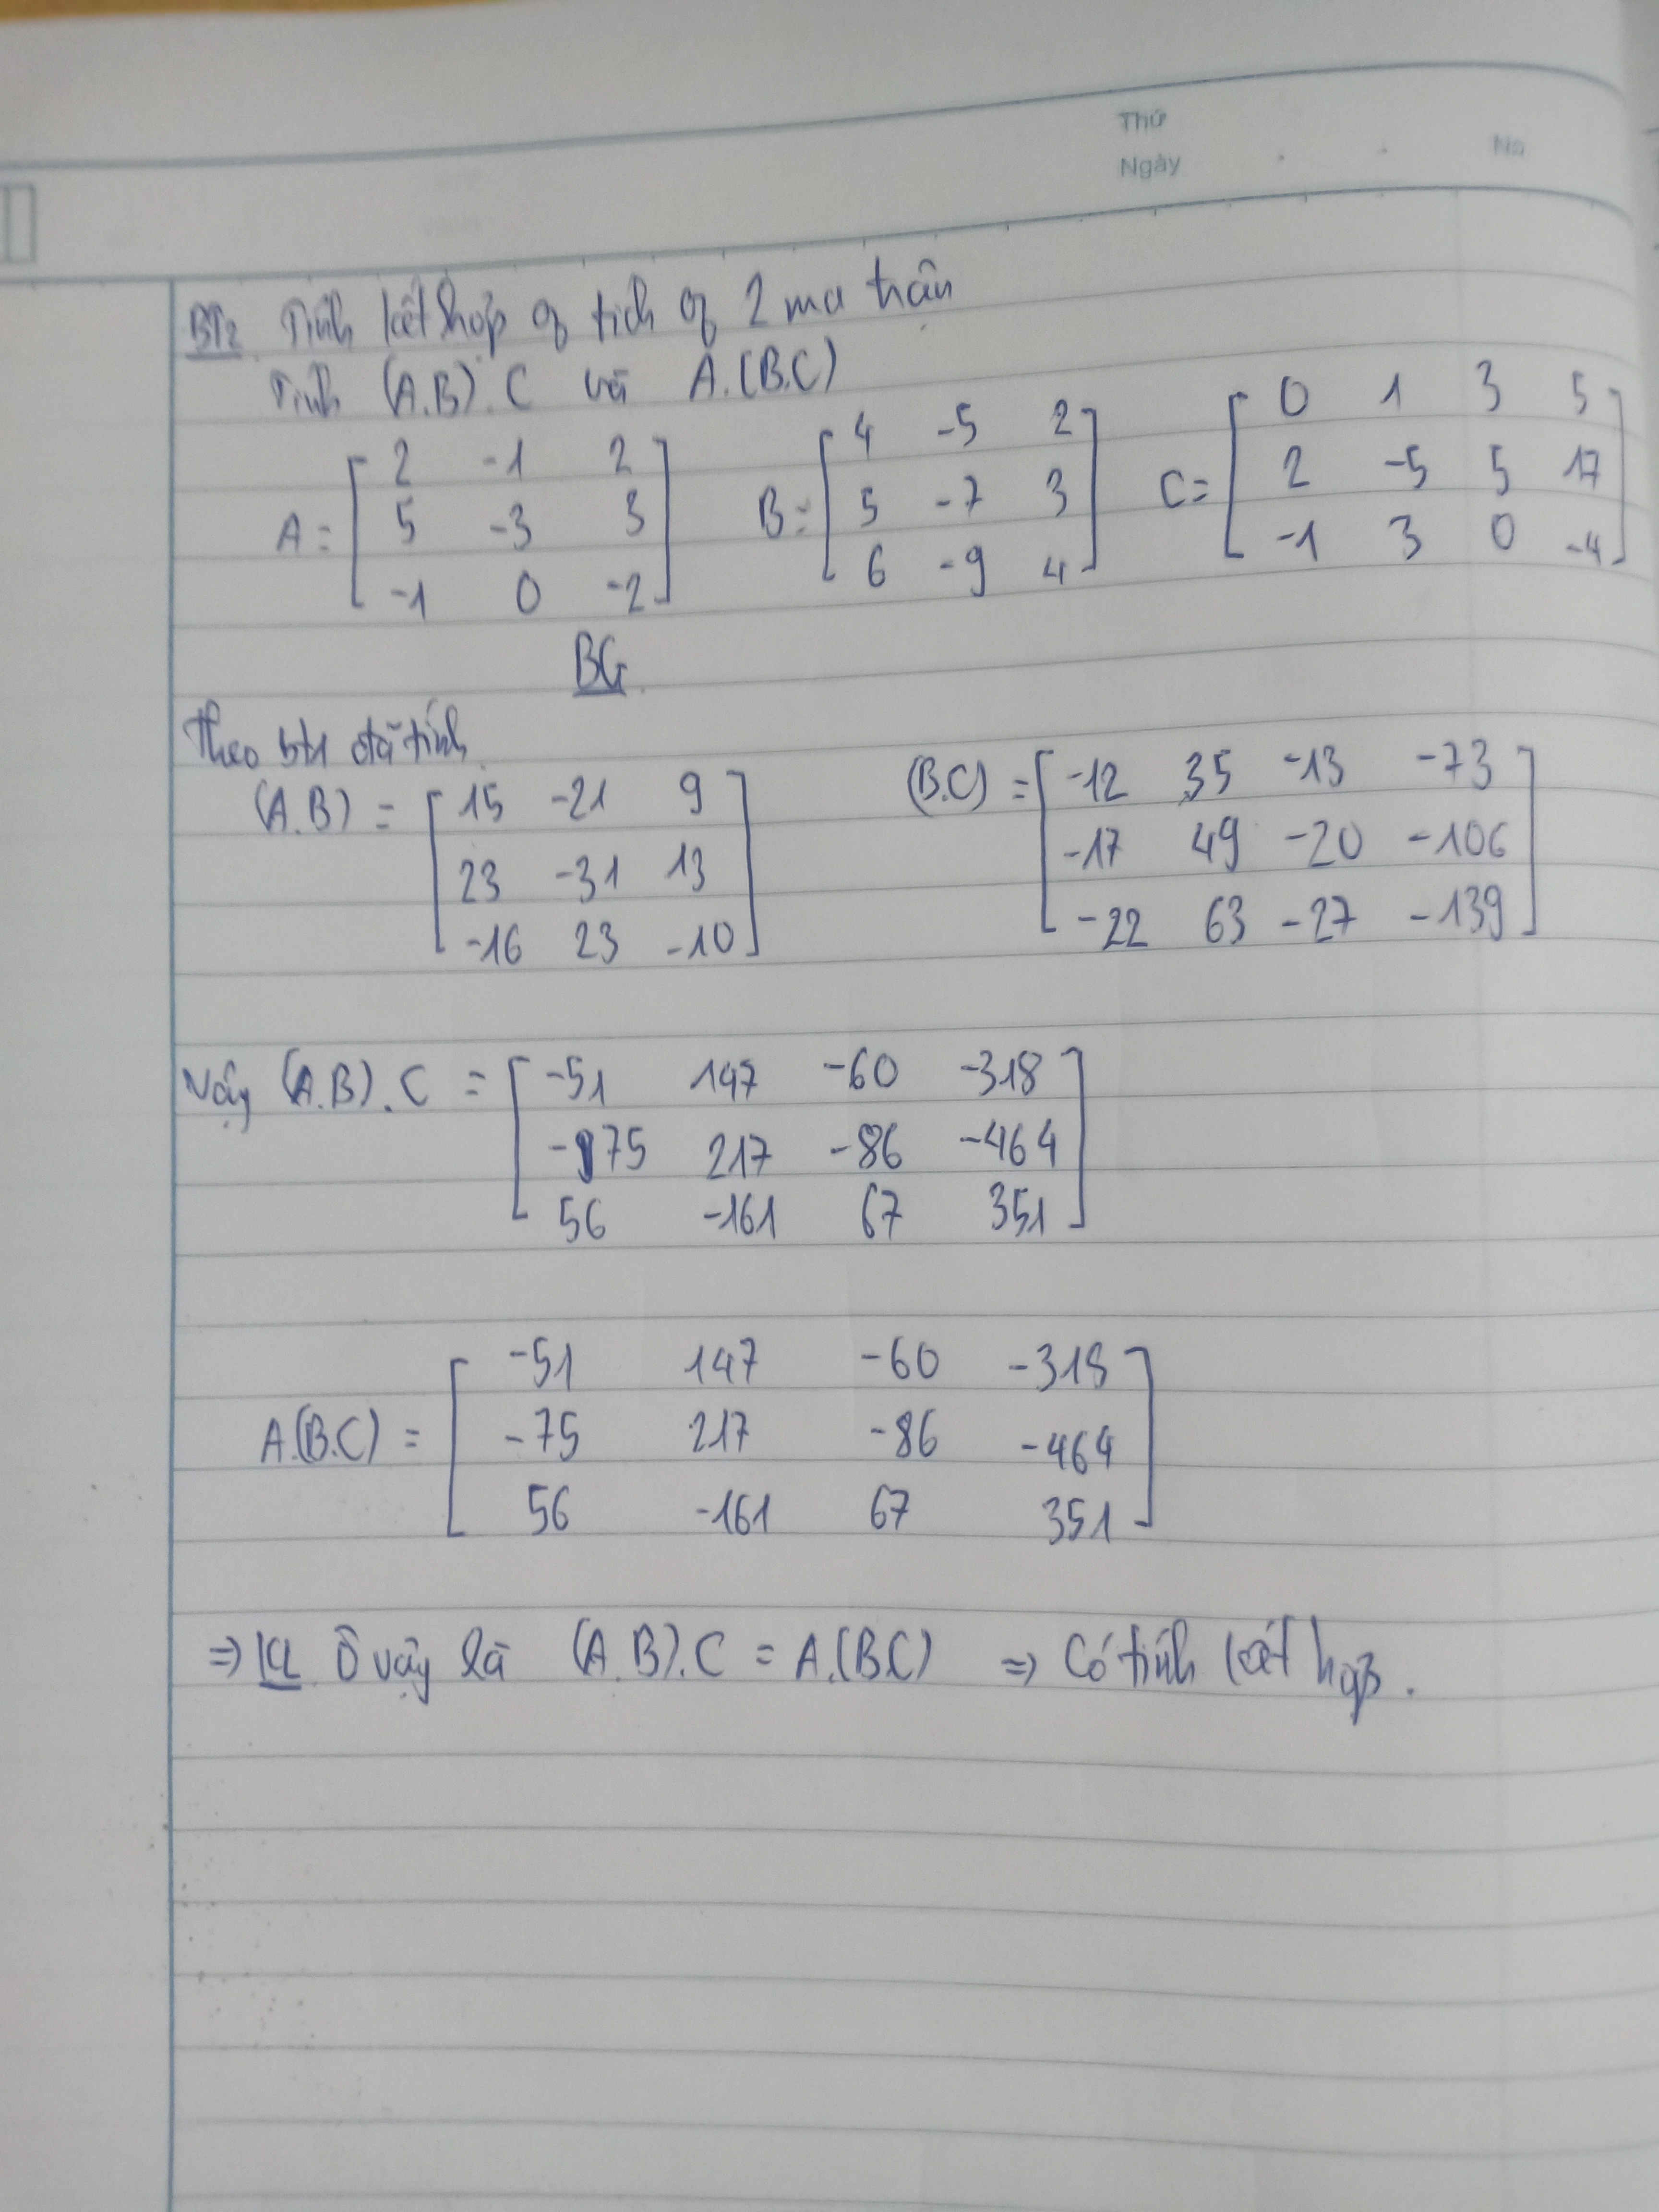 Thứ
Ngày No
BT2. Tính kết hợp of tích of 2 ma trận
Tính (A.B).C và A.(B.C)
A = [ 2 -1 2 B = [ 4 -5 2 ] C = [ 0 1 3 5
5 -3 3 5 -7 3 2 -5 5 17
-1 0 -2 ] 6 -9 4 ] -1 3 0 -4 ]
BG
Theo bt1 đã tính
(A.B) = [ 15 -21 9 ] (B.C) = [ -12 35 -13 -73 ]
23 -31 13 -17 49 -20 -106
-16 23 -10 -22 63 -27 -139
Vậy (A.B).C = [ -51 147 -60 -318 ]
-75 217 -86 -464
56 -161 67 351
A.(B.C) = [ -51 147 -60 -318 ]
-75 217 -86 -464
56 -161 67 351
⇒ KL Ồ vậy là (A.B).C = A.(B.C) ⇒ Có tính kết hợp.